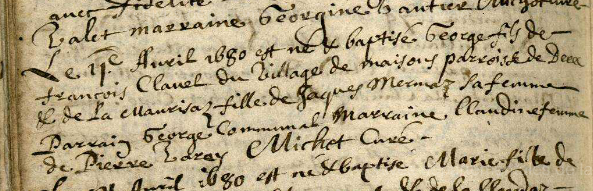 avec fidelité
Valet marraine Georgine Gautier
Le 1er Avril 1680 est né & baptisé George fils de
françois Clauel du Village de maisons parroisse de
& de La Maurisaz fille de Jaques Mermaz sa femme
Parrain George Communal Marraine Claudine femme
de Pierre Varey Michet Curé
Avril 1680 est né & baptisé Marie fille de